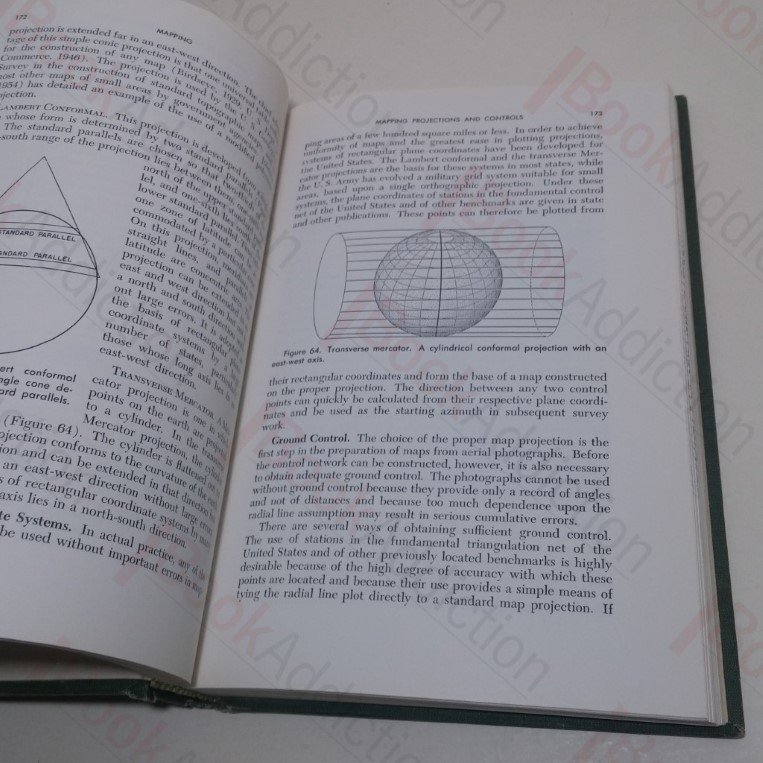 172
MAPPING
projection is extended far in an east-west direction. The
tage of this simple conic projection is that one universal
for the construction of any map (Birdseye, 1929,
Commerce, 1946). The projection is used by the U. S.
Survey in the construction of standard topographic
most other maps of small areas by government agencies.
1954) has detailed an example of the use of a modified
jection.
LAMBERT CONFORMAL. This projection is developed from
whose form is determined by two standard
The standard parallels are chosen so that two-thirds of
-south range of the projection lies between them,
north of the upper standard
lel, and one-sixth
lower standard parallel
one zone of latitude can
commodated by a particular
On this projection
straight lines, and
latitude are concentric
projection can be extended
east and west direction
a north and south direction with-
out large errors. It is adopted
the basis of rectangular
coordinate systems
number of states, particularly
those whose long axis lies
east-west direction.
STANDARD PARALLEL
STANDARD PARALLEL
ert conformal
ngle cone de-
ard parallels.
TRANSVERSE MERCATOR. A
cator projection is one in
points on the earth are
to a cylinder. In the
Mercator projection, the cylinder
(Figure 64). The cylinder is flattened
ojection conforms to the curvature of the
ion and can be extended in that direction
an east-west direction without large errors
s of rectangular coordinate systems by
axis lies in a north-south direction.
te Systems. In actual practice, any of the
be used without important errors in map-
MAPPING PROJECTIONS AND CONTROLS 173
ping areas of a few hundred square miles or less. In order to achieve
uniformity of maps and the greatest ease in plotting projections,
systems of rectangular plane coordinates have been developed for
the United States. The Lambert conformal and the transverse Mer-
cator projections are the basis for these systems in most states, while
the U. S. Army has evolved a military grid system suitable for small
areas, based upon a single orthographic projection. Under these
systems, the plane coordinates of stations in the fundamental control
net of the United States and of other benchmarks are given in state
and other publications. These points can therefore be plotted from
Figure 64. Transverse mercator. A cylindrical conformal projection with an
east-west axis.
their rectangular coordinates and form the base of a map constructed
on the proper projection. The direction between any two control
points can quickly be calculated from their respective plane coordi-
nates and be used as the starting azimuth in subsequent survey
work.
Ground Control. The choice of the proper map projection is the
first step in the preparation of maps from aerial photographs. Before
the control network can be constructed, however, it is also necessary
to obtain adequate ground control. The photographs cannot be used
without ground control because they provide only a record of angles
and not of distances and because too much dependence upon the
radial line assumption may result in serious cumulative errors.
There are several ways of obtaining sufficient ground control.
The use of stations in the fundamental triangulation net of the
United States and of other previously located benchmarks is highly
desirable because of the high degree of accuracy with which these
points are located and because their use provides a simple means of
tying the radial line plot directly to a standard map projection. If
BookAddiction